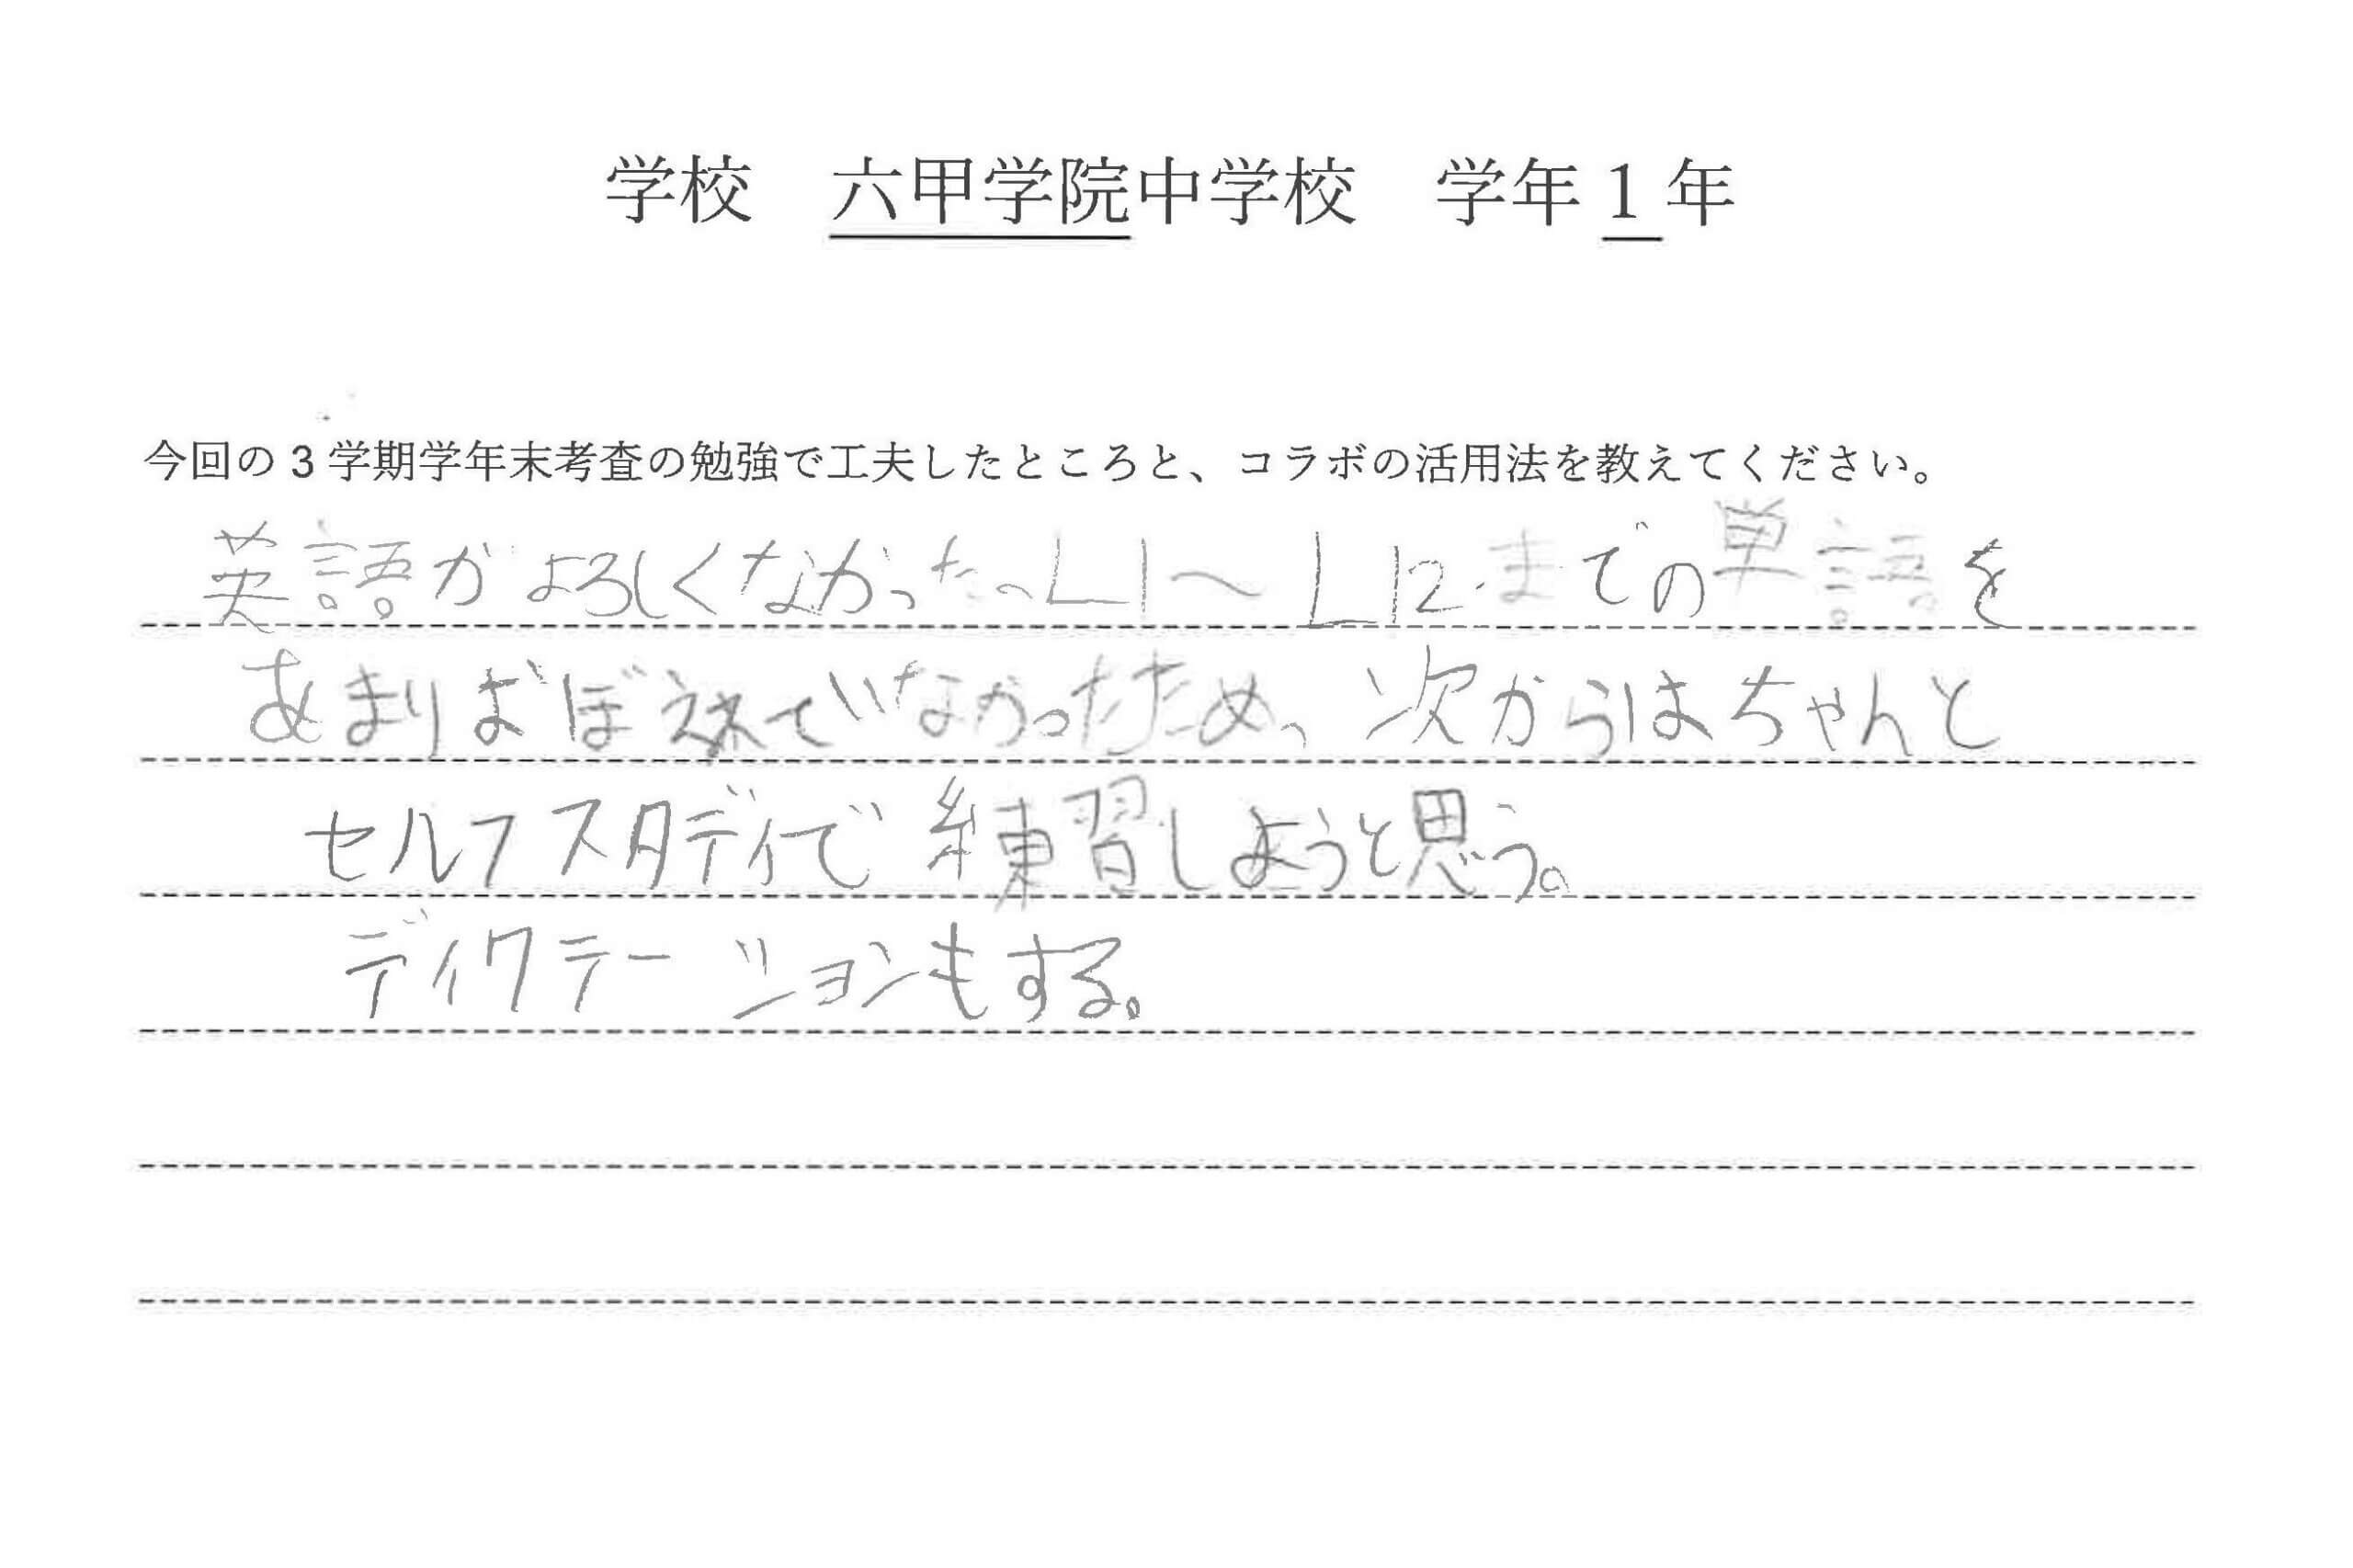 学校　六甲学院中学校　学年 1 年
今回の 3 学期学年末考査の勉強で工夫したところと、コラボの活用法を教えてください。
英語がよろしくなかった。L1〜L12までの単語を
あまりおぼえれていなかったため、次からはちゃんと
セルフスタディで練習しようと思う。
ディクテーションもする。